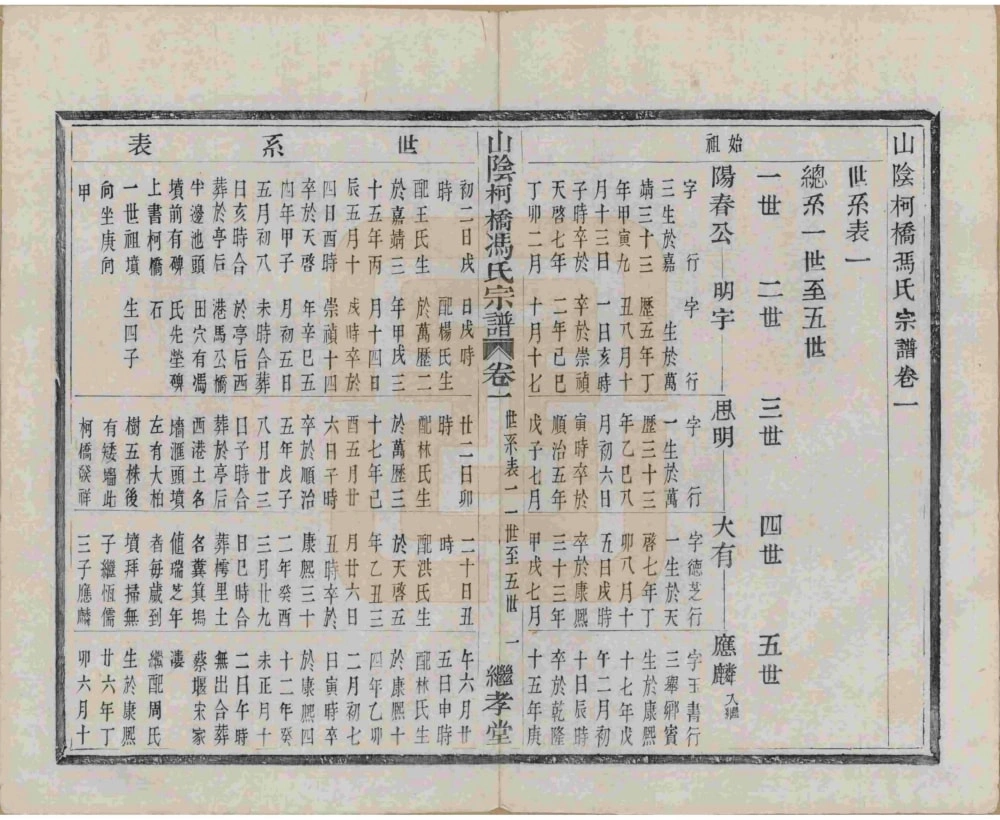 山陰柯橋馮氏宗譜卷一
世系表一
總系一世至五世
一世 二世 三世 四世 五世
始祖
陽春公 明字 思明 大有 應麟入繼
字 行
三生於嘉
靖三十三
年甲寅九
月十三日
子時卒於
天啓七年
丁卯二月
初二日戌
時
配王氏生
於嘉靖三
十五年丙
辰五月十
四日酉時
卒於天啓
四年甲子
五月初八
日亥時合
葬於亭后
牛邊池頭
墳前有碑
上書柯橋
一世祖墳
向坐庚向
甲
字 行
生於萬
歷五年丁
丑八月十
一日亥時
卒於崇禎
二年己巳
十月十七
日戌時
配楊氏生
於萬歷二
年甲戌三
月十四日
戌時卒於
崇禎十四
年辛巳五
月初五日
未時合葬
於亭后西
港馬公橋
田穴有馮
氏先塋碑
石
生四子
字 行
一生於萬
歷三十三
年乙巳八
月初六日
寅時卒於
順治五年
戊子七月
廿二日卯
時
配林氏生
於萬歷三
十七年己
酉五月廿
六日子時
卒於順治
五年戊子
八月廿三
日子時合
葬於亭后
西港土名
墻滙頭墳
左有大柏
樹五株後
有矮墻此
柯橋發祥
字德芝行
一生於天
啓七年丁
卯八月十
五日戌時
卒於康熙
三十三年
甲戌七月
二十日丑
時
配洪氏生
於天啓五
年乙丑三
月廿六日
丑時卒於
康熙三十
二年癸酉
三月廿九
日巳時合
葬樗里土
名糞箕塢
値瑞芝年
者每歲到
墳拜掃無
子繼恆儒
三子應麟
字玉書行
三舉鄉賓
生於康熙
十七年戊
午二月初
十日辰時
卒於乾隆
十五年庚
午六月廿
五日申時
配林氏生
於康熙十
四年乙卯
二月初七
日寅時卒
於康熙四
十二年癸
未正月十
二日午時
無出合葬
蔡堰宋家
漊
繼配周氏
生於康熙
廿六年丁
卯六月十
山陰柯橋馮氏宗譜 卷一 世系表一 一世至五世 一 繼孝堂
世系表